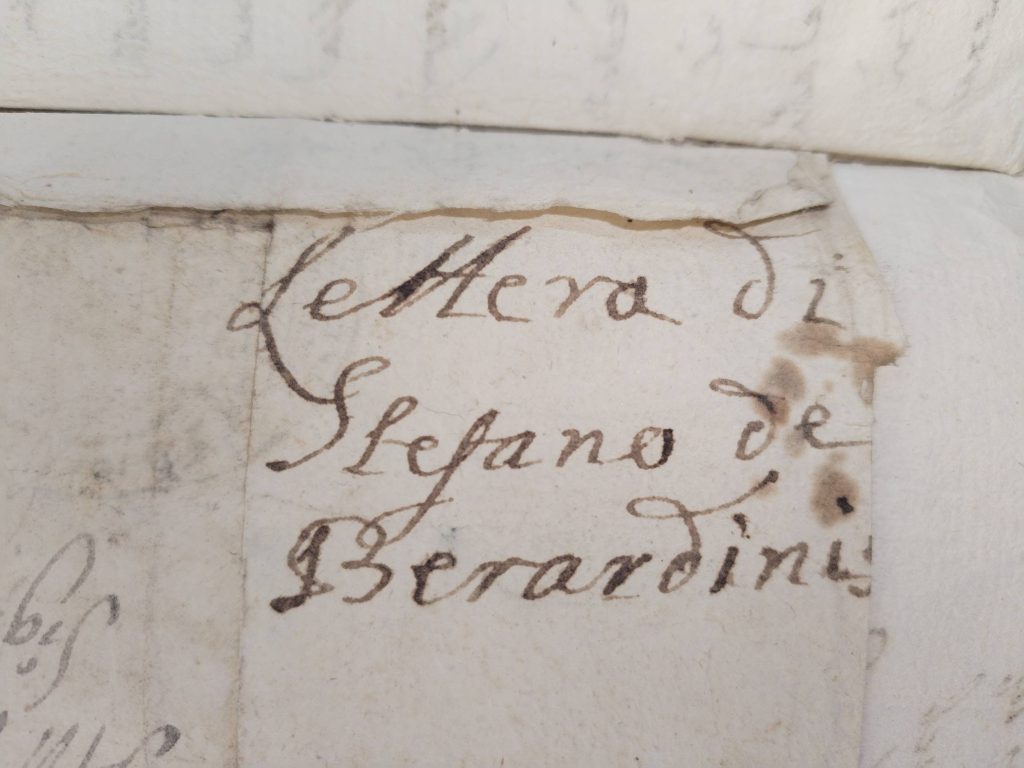 Lettera di
Stefano de
Berardinis